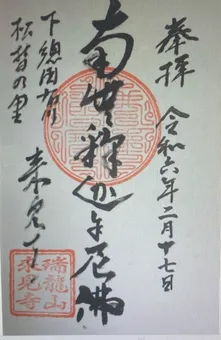 奉拝 令和六年二月十七日
南無釋迦牟尼佛
下總国布川
松替の里
来見寺
瑞龍山
來見寺